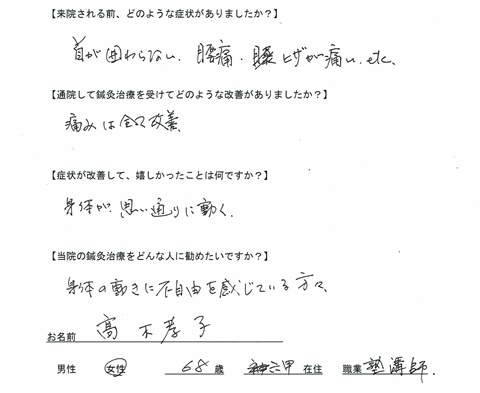 【来院される前、どのような症状がありましたか？】
首が回わらない、腰痛・ヒザが痛い、etc、
【通院して鍼灸治療を受けてどのような改善がありましたか？】
痛みは全て改善、
【症状が改善して、嬉しかったことは何ですか？】
身体が思い通りに動く。
【当院の鍼灸治療をどんな人に勧めたいですか？】
身体の動きに不自由を感じている方々、
お名前 高木孝子
男性 女性 68 歳 六甲 在住 職業 塾講師.